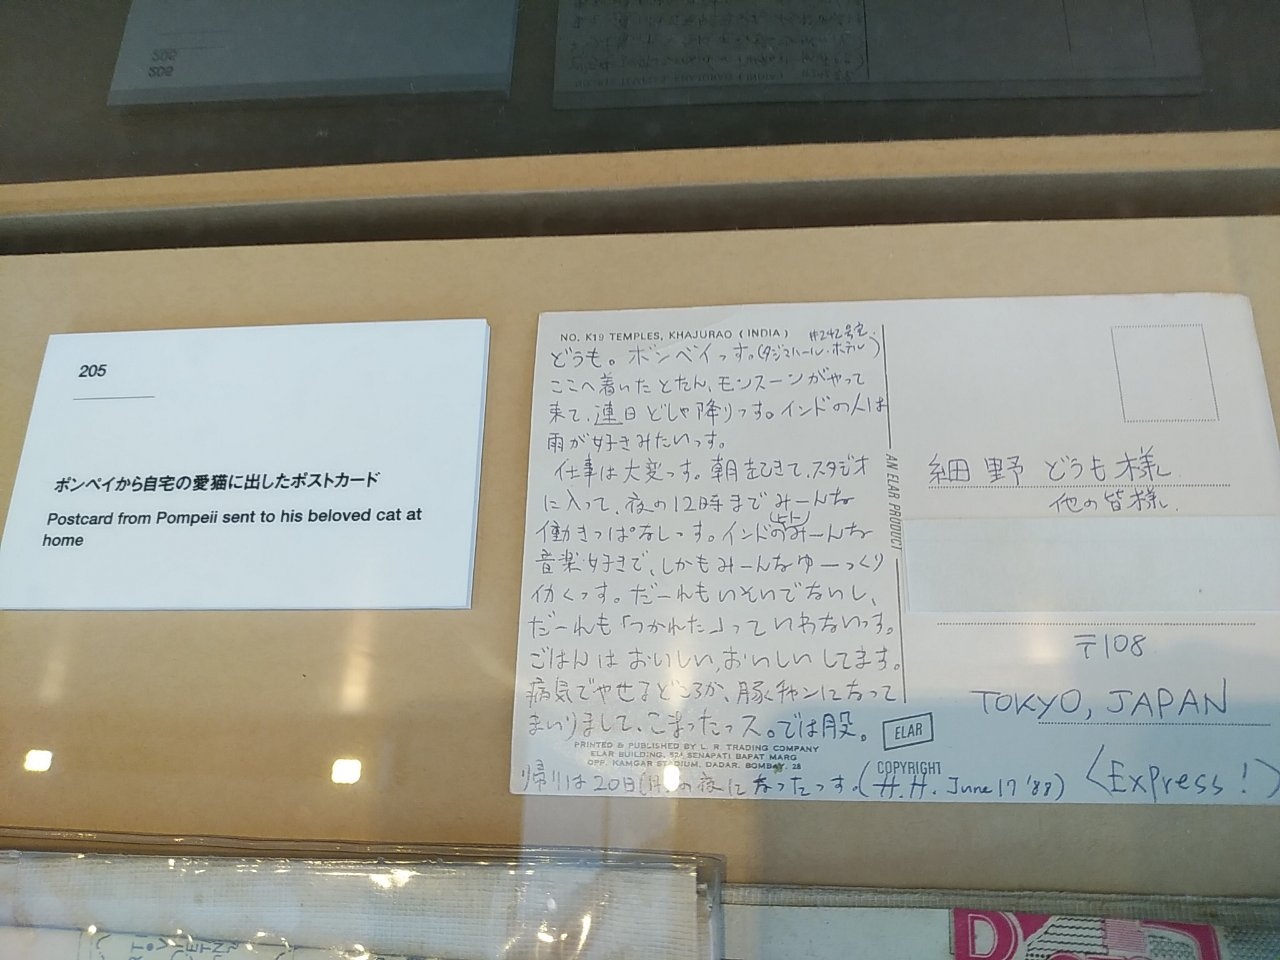 205
ポンペイから自宅の愛猫に出したポストカード
Postcard from Pompeii sent to his beloved cat at
home
NO. K19 TEMPLES, KHAJURAO (INDIA)
#242号室.
どうも。ボンベイっす。(タジマハール・ホテル)
ここへ着いたとたん、モンスーンがやって
来て、連日どしゃ降りっす。インドの人は
雨が好きみたいっす。
仕事は大変っす。朝起きて、スタジオ
に入って、夜の12時までみーんな
働きっぱなしっす。インドの(ヒト)みーんな
音楽好きで、しかもみーんなゆーっくり
仂くっす。だーれもいそいでないし、
だーれも「つかれた」っていわないっす。
ごはんはおいしい、おいしいしてます。
病気でやせるどころか、豚チャンになって
まいりまして、こまったっス。では股。
PRINTED & PUBLISHED BY L. R. TRADING COMPANY
ELAR BUILDING, 524 SENAPATI BAPAT MARG
OPP. KAMGAR STADIUM, DADAR, BOMBAY. 28
帰りは20日(月)の夜になったっす。(H.H. June 17 '88)
AN ELAR PRODUCT
ELAR
COPYRIGHT
細野どうも様
他の皆様.
〒108
TOKYO, JAPAN
<Express!>